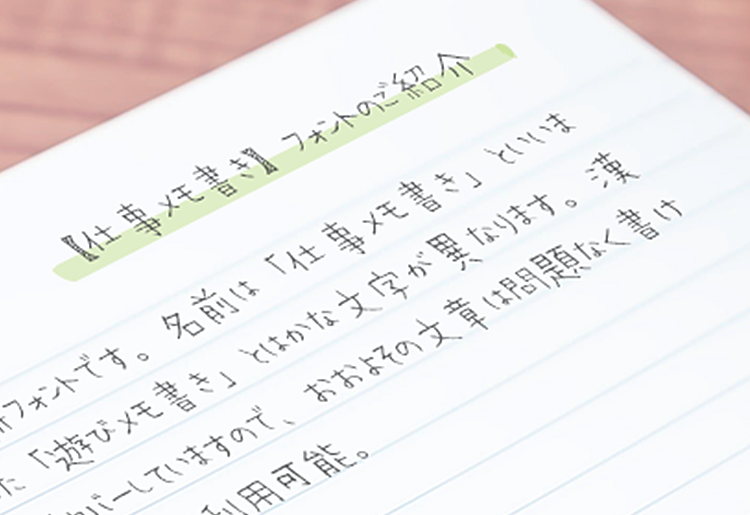 【仕事メモ書き】フォントのご紹介
フォントです。名前は「仕事メモ書き」といいま
た「遊びメモ書き」とはかな文字が異なります。漢
バーしていますので、おおよその文章は問題なく書け
利用可能。